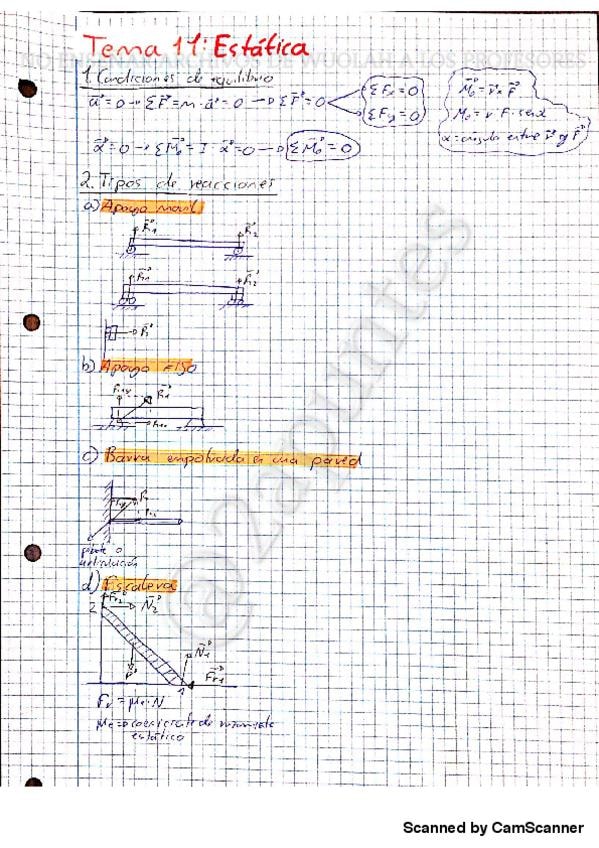 NO ENSEÑAR ARCHIVOS DE WUOLAH A LOS PROFESORES
Tema 11: Estática
1. Condiciones de equilibrio
a⃗ = 0 → ΣF⃗ = m · a⃗ = 0 → ΣF⃗ = 0
ΣFx = 0
ΣFy = 0
M⃗o = r⃗ x F⃗
Mo = r · F · sen α
α = ángulo entre r⃗ y F⃗
α⃗ = 0 → ΣM⃗o = I · α⃗ = 0 → ΣM⃗o = 0
2. Tipos de reacciones
a) Apoyo móvil
R⃗1 R⃗2
R⃗1 R⃗2
R⃗
b) Apoyo fijo
R⃗1
c) Barra empotrada en una pared
R
articulación
d) Escalera
2 Fr2 N⃗2
P⃗
N⃗1
F⃗r1
1
Fr = μe · N
μe → coeficiente de rozamiento
estático
@2apuntes
Scanned by CamScanner